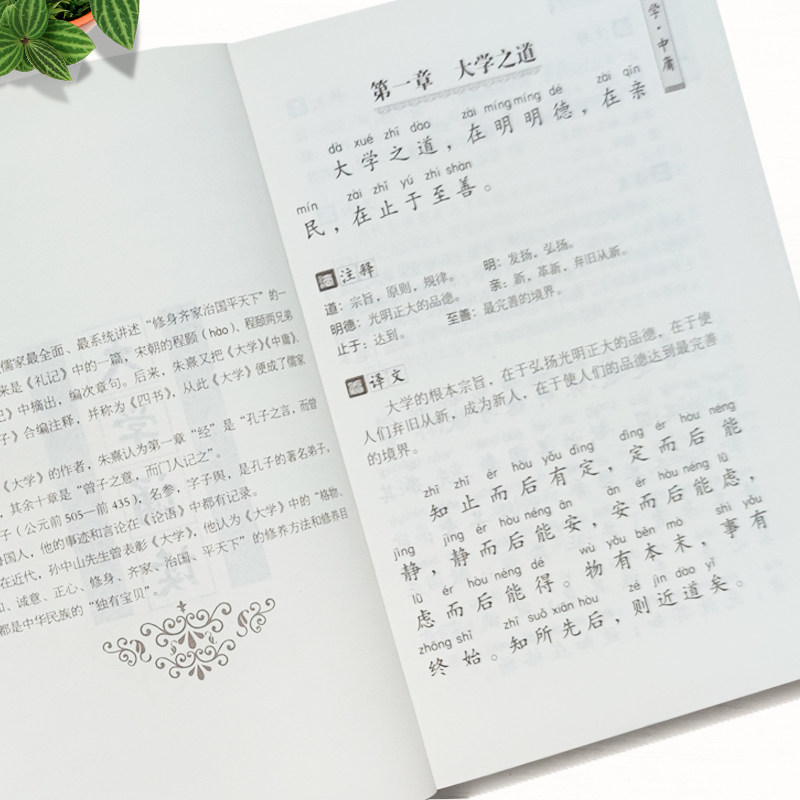 儒家最全面、最系统讲述“修身齐家治国平天下”的一
来是《礼记》中的一篇，宋朝的程颢（hào）、程颐两兄弟
记》中摘出，编次章句。后来，朱熹又把《大学》《中庸》、
子》合编注释，并称为《四书》，从此《大学》便成了儒家
《大学》的作者，朱熹认为第一章“经”是“孔子之言，而曾
，其余十章是“曾子之意，而门人记之”。
子（公元前505—前435），名参，字子舆，是孔子的著名弟子，
国人，他的事迹和言论在《论语》中都有记录。
在近代，孙中山先生曾表彰《大学》，他认为《大学》中的“格物、
、诚意、正心、修身、齐家、治国、平天下”的修养方法和修养目
都是中华民族的“独有宝贝”。
学·中庸
第一章 大学之道
dà xué zhī dào zài míng míng dé zài qīn
大学之道，在明明德，在亲
mín zài zhǐ yú zhì shàn
民，在止于至善。
注释
道：宗旨，原则，规律。 明：发扬，弘扬。
明德：光明正大的品德。 亲：新，革新，弃旧从新。
止于：达到。 至善：最完善的境界。
译文
大学的根本宗旨，在于弘扬光明正大的品德，在于使
人们弃旧从新，成为新人，在于使人们的品德达到最完善
的境界。
zhī zhǐ ér hòu yǒu dìng dìng ér hòu néng
知止而后有定，定而后能
jìng jìng ér hòu néng ān ān ér hòu néng lǜ
静，静而后能安，安而后能虑，
lǜ ér hòu néng dé wù yǒu běn mò shì yǒu
虑而后能得。物有本末，事有
zhōng shǐ zhī suǒ xiān hòu zé jìn dào yǐ
终始。知所先后，则近道矣。